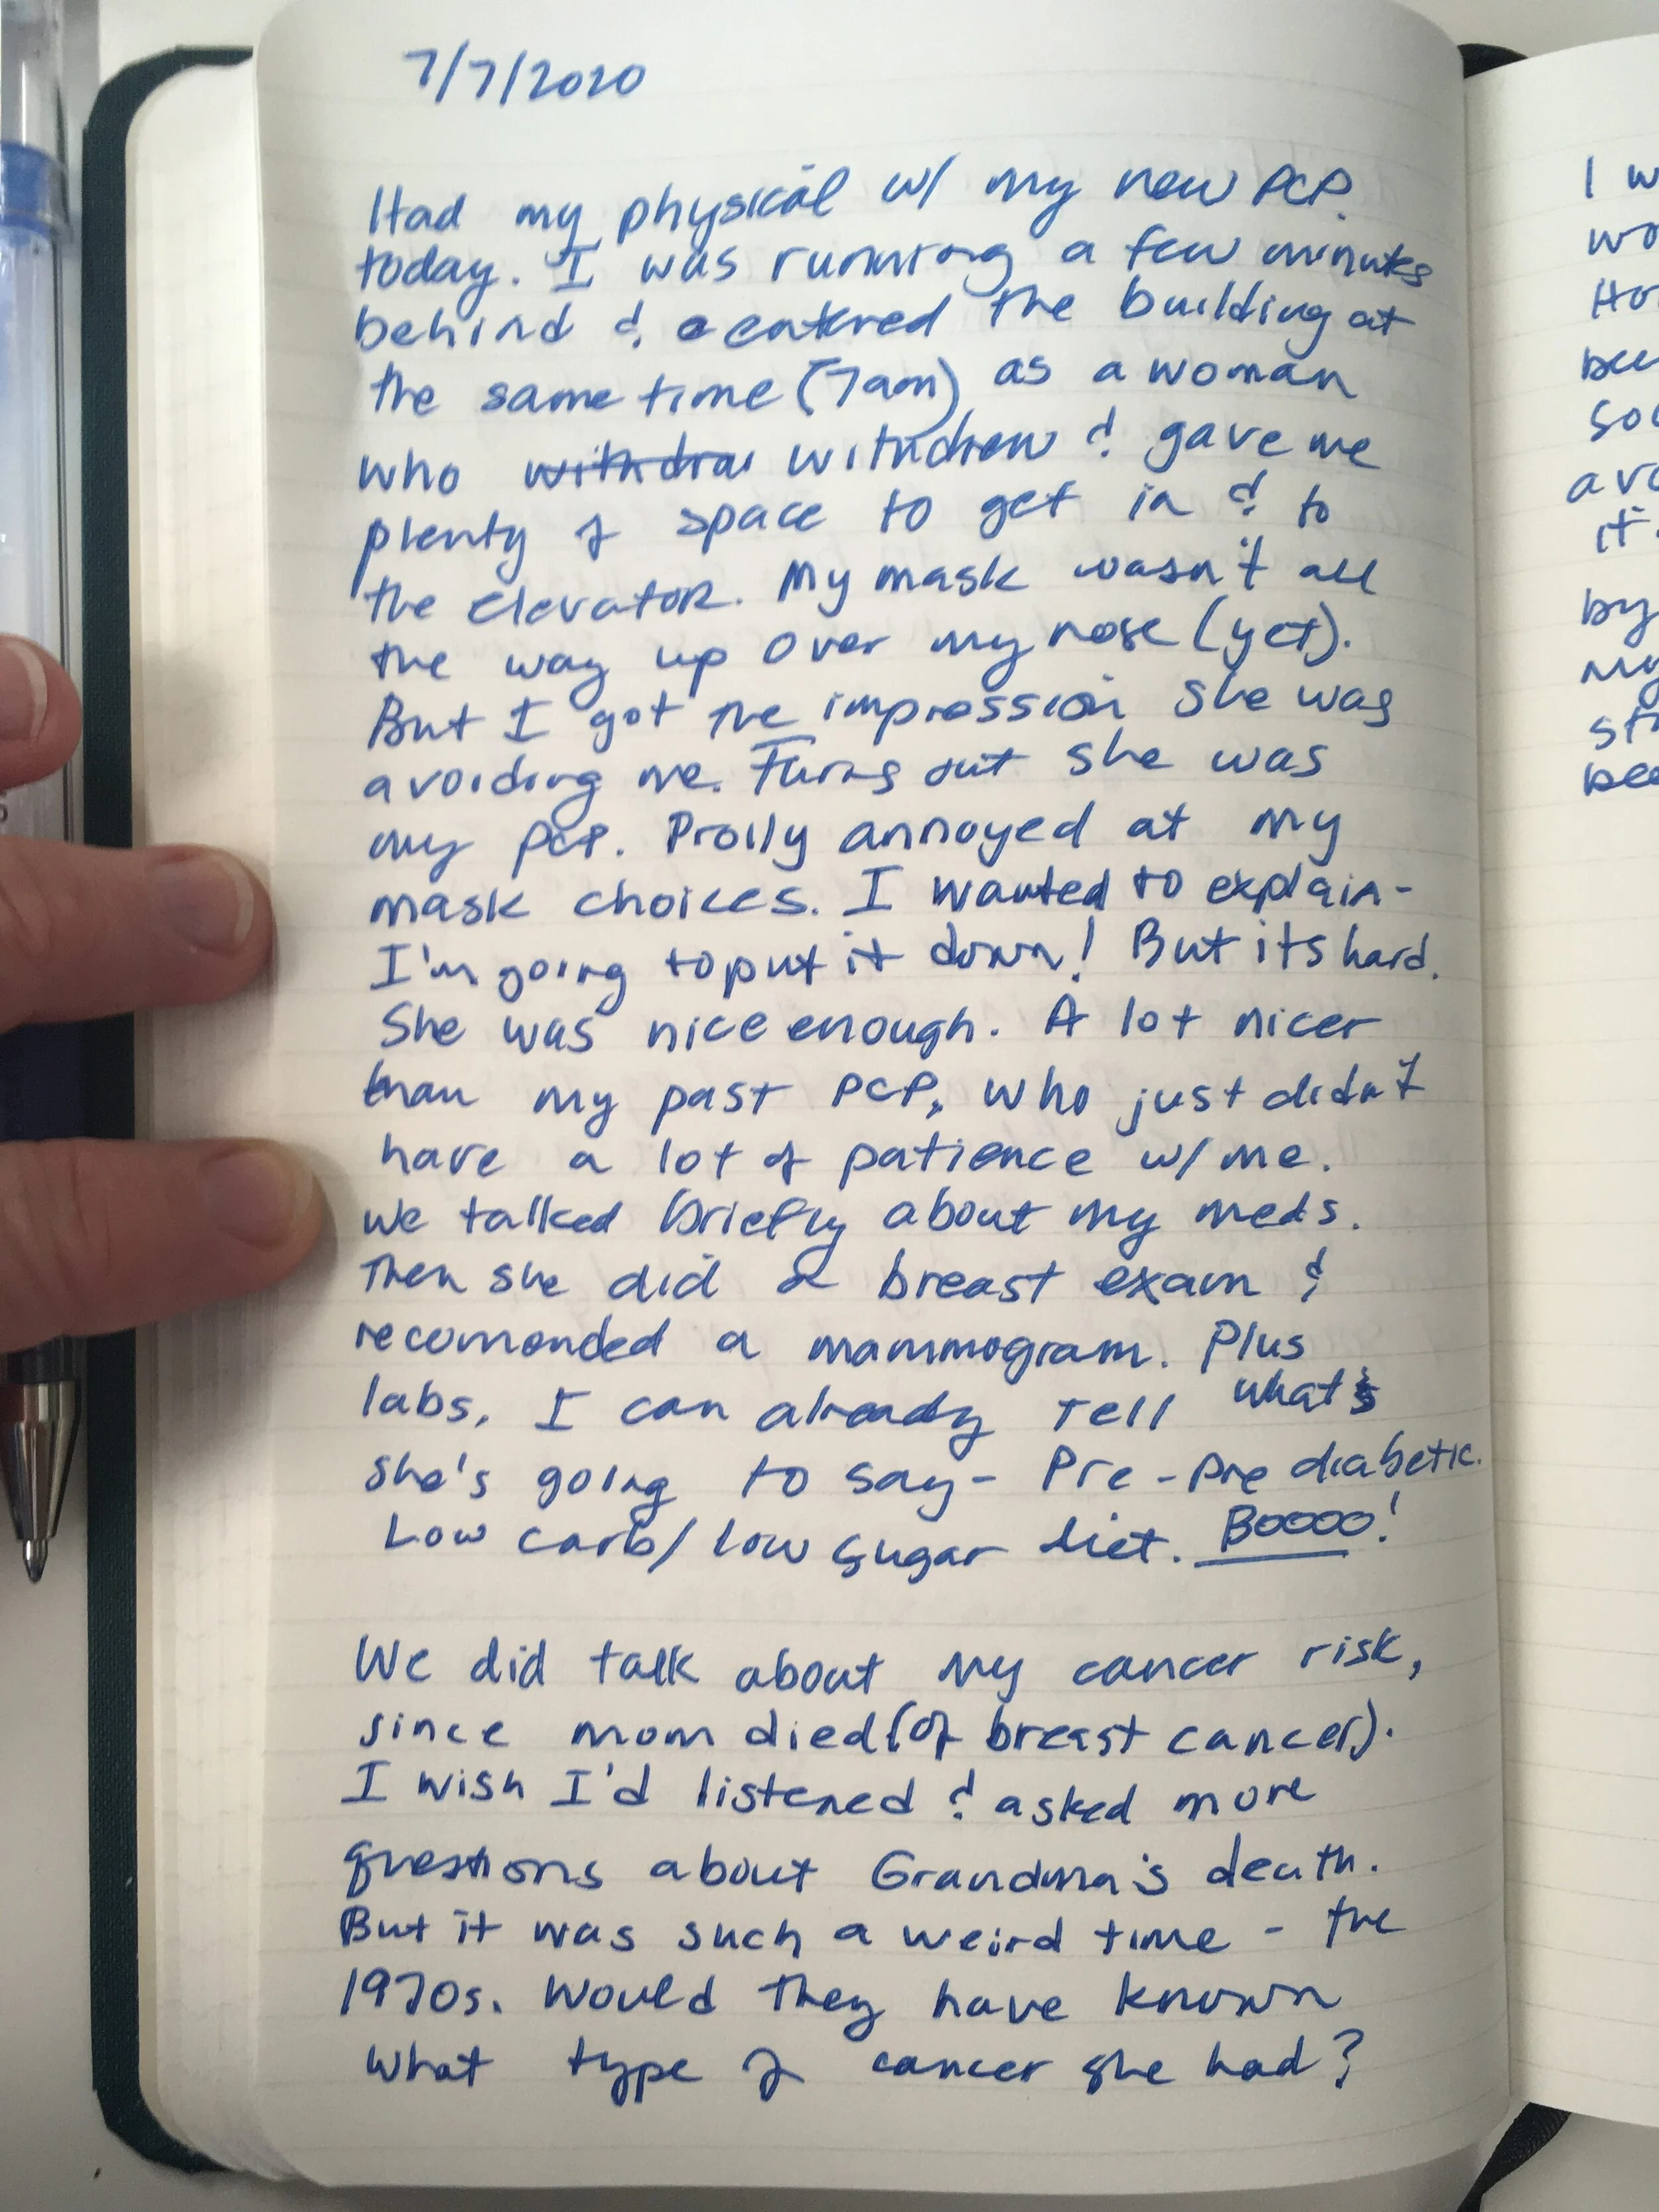 7/7/2020
Had my physical w/ my new PCP
today. I was running a few minutes
behind & entered the building at
the same time (7am) as a woman
who withdraw withdrew & gave me
plenty of space to get in & to
the elevator. My mask wasn't all
the way up over my nose (yet).
But I got the impression she was
avoiding me. Turns out she was
my PCP. Prolly annoyed at my
mask choices. I wanted to explain-
I'm going to put it down! But its hard.
She was nice enough. A lot nicer
than my past PCP, who just didn't
have a lot of patience w/ me.
We talked briefly about my meds.
Then she did a breast exam &
recommended a mammogram. Plus
labs, I can already tell what
she's going to say- Pre-pre diabetic.
Low carb/low sugar diet. Boooo!
We did talk about my cancer risk,
since mom died (of breast cancer).
I wish I'd listened & asked more
questions about Grandma's death.
But it was such a weird time - the
1970s. Would they have known
what type of cancer she had?
I w
wo
Ho
bee
so
avo
it.
by
my
st
bee